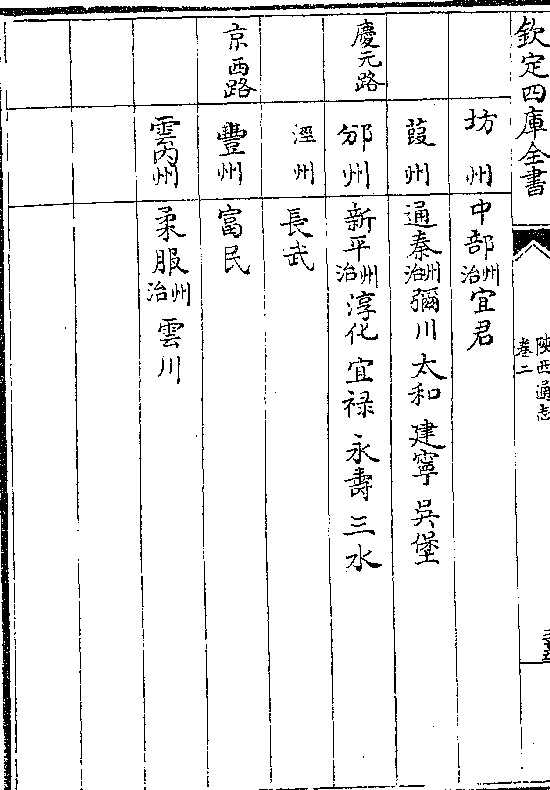 欽定四庫全書
陝西通志
卷二
坊州 中部州治宜君
葭州 通秦州治彌川 太和 建寧 吳堡
慶元路 邠州 新平州治淳化 宜祿 永壽 三水
涇州 長武
京西路 豐州 富民
雲内州 柔服州治 雲川